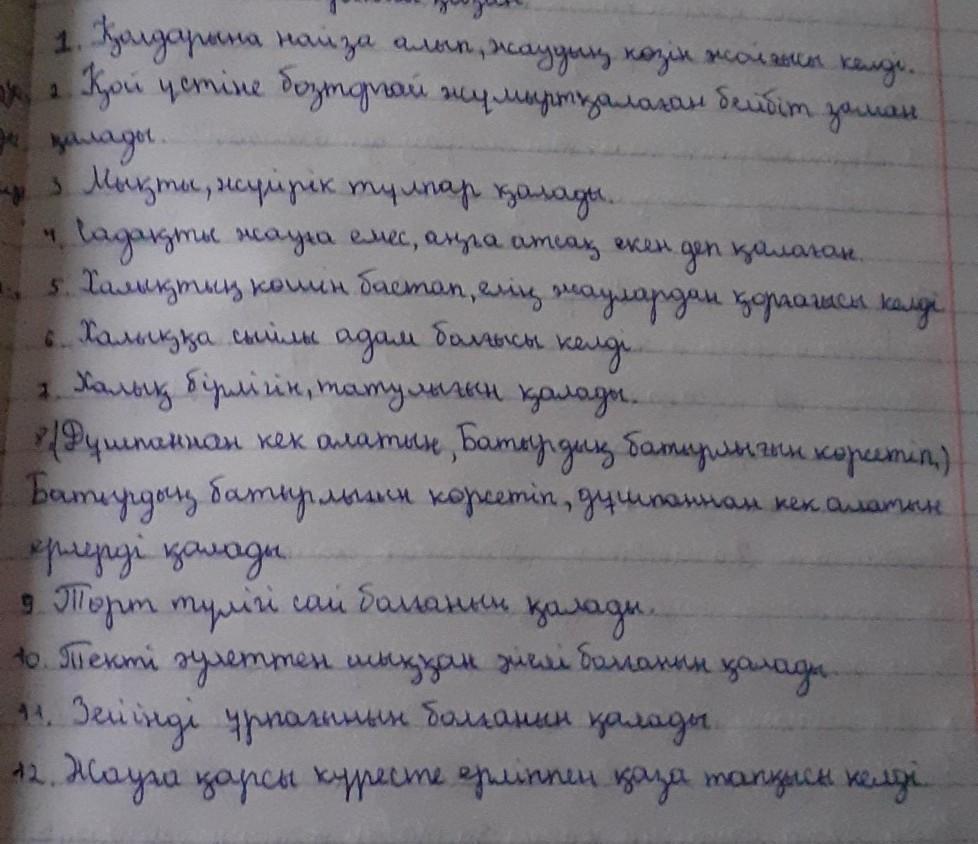 1. Қолдарына найза алып, жаудың көзін жойғысы келді.
2 Қой үстіне бозторғай жұмыртқалаған бейбіт заман
қалады.
3 Мықты, жүйрік тұлпар қалады.
4. Садақты жауға емес, аңға атсақ екен деп қалаған.
5. Халықтың көшін бастап, елін жаулардан қорғағысы келді
6. Халыққа сыйлы адам болғысы келді
7. Халық бірлігін, татулығын қалады.
8. (Дұшпаннан кек алатын, Батырдың батырлығын көрсетіп,)
Батырдың батырлығын көрсетіп, дұшпаннан кек алатын
ерлерді қалады
9 Төрт түлігі сай болғанын қалады.
10. Текті әулеттен шыққан әйелі болғанын қалады
11. Зейінді ұрпағының болғанын қалады
12. Жауға қарсы күресте ерлікпен қаза тапқысы келді